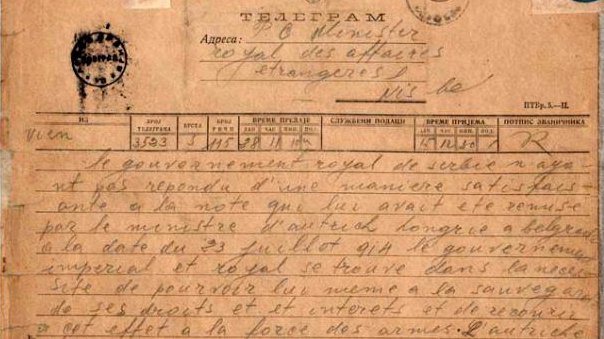 ТЕЛЕГРАМ
Адреса: P O Minister
royal des affaires
etrangeres
Nis
ПТБр. 5.—II.
ИЗ БРОЈ ТЕЛЕГРАМА ВРСТА БРОЈ РЕЧИ ВРЕМЕ ПРЕДАЈЕ СЛУЖБЕНИ ПОДАЦИ ВРЕМЕ ПРИЈЕМА ПОТПИС ЗВАНИЧНИКА
ДАН ЧАС ДАН ЧАС
Wien 3523 5 115 28
le gouvernement royal de serbie n ay a
nt pas repondu d'une maniere satisfais-
ante a la note qui lui avait ete remise
par le ministre d'autrich hongrie a belgrade
a la date du 23 juillot 914 le gouvernement
imperial et royal se trouve dans la neces
site de pourvoir lui meme a la sauvegarde
de ses droits et et interets et de recourir
a cet effet a la force des armes. L'autriche